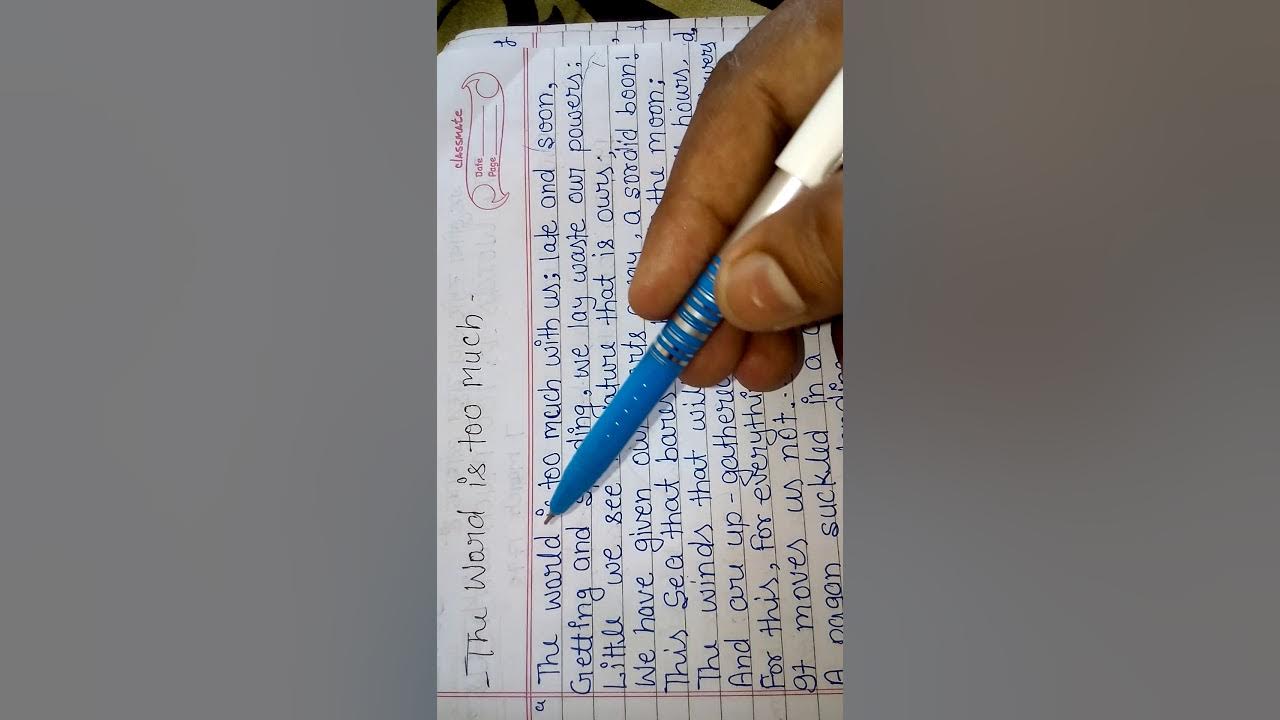 classmate
Date
Page
- The Word is too Much -
a The world is too much with us; late and soon,
Getting and ding, we lay waste our powers;
Little we see ature that is ours.
We have given ou rts y, a sordid boon!
This Sea that bares the moon;
The winds that wil hours
And are up-gathere
For this, for everythi
It moves us not.
A pagan suckled in a